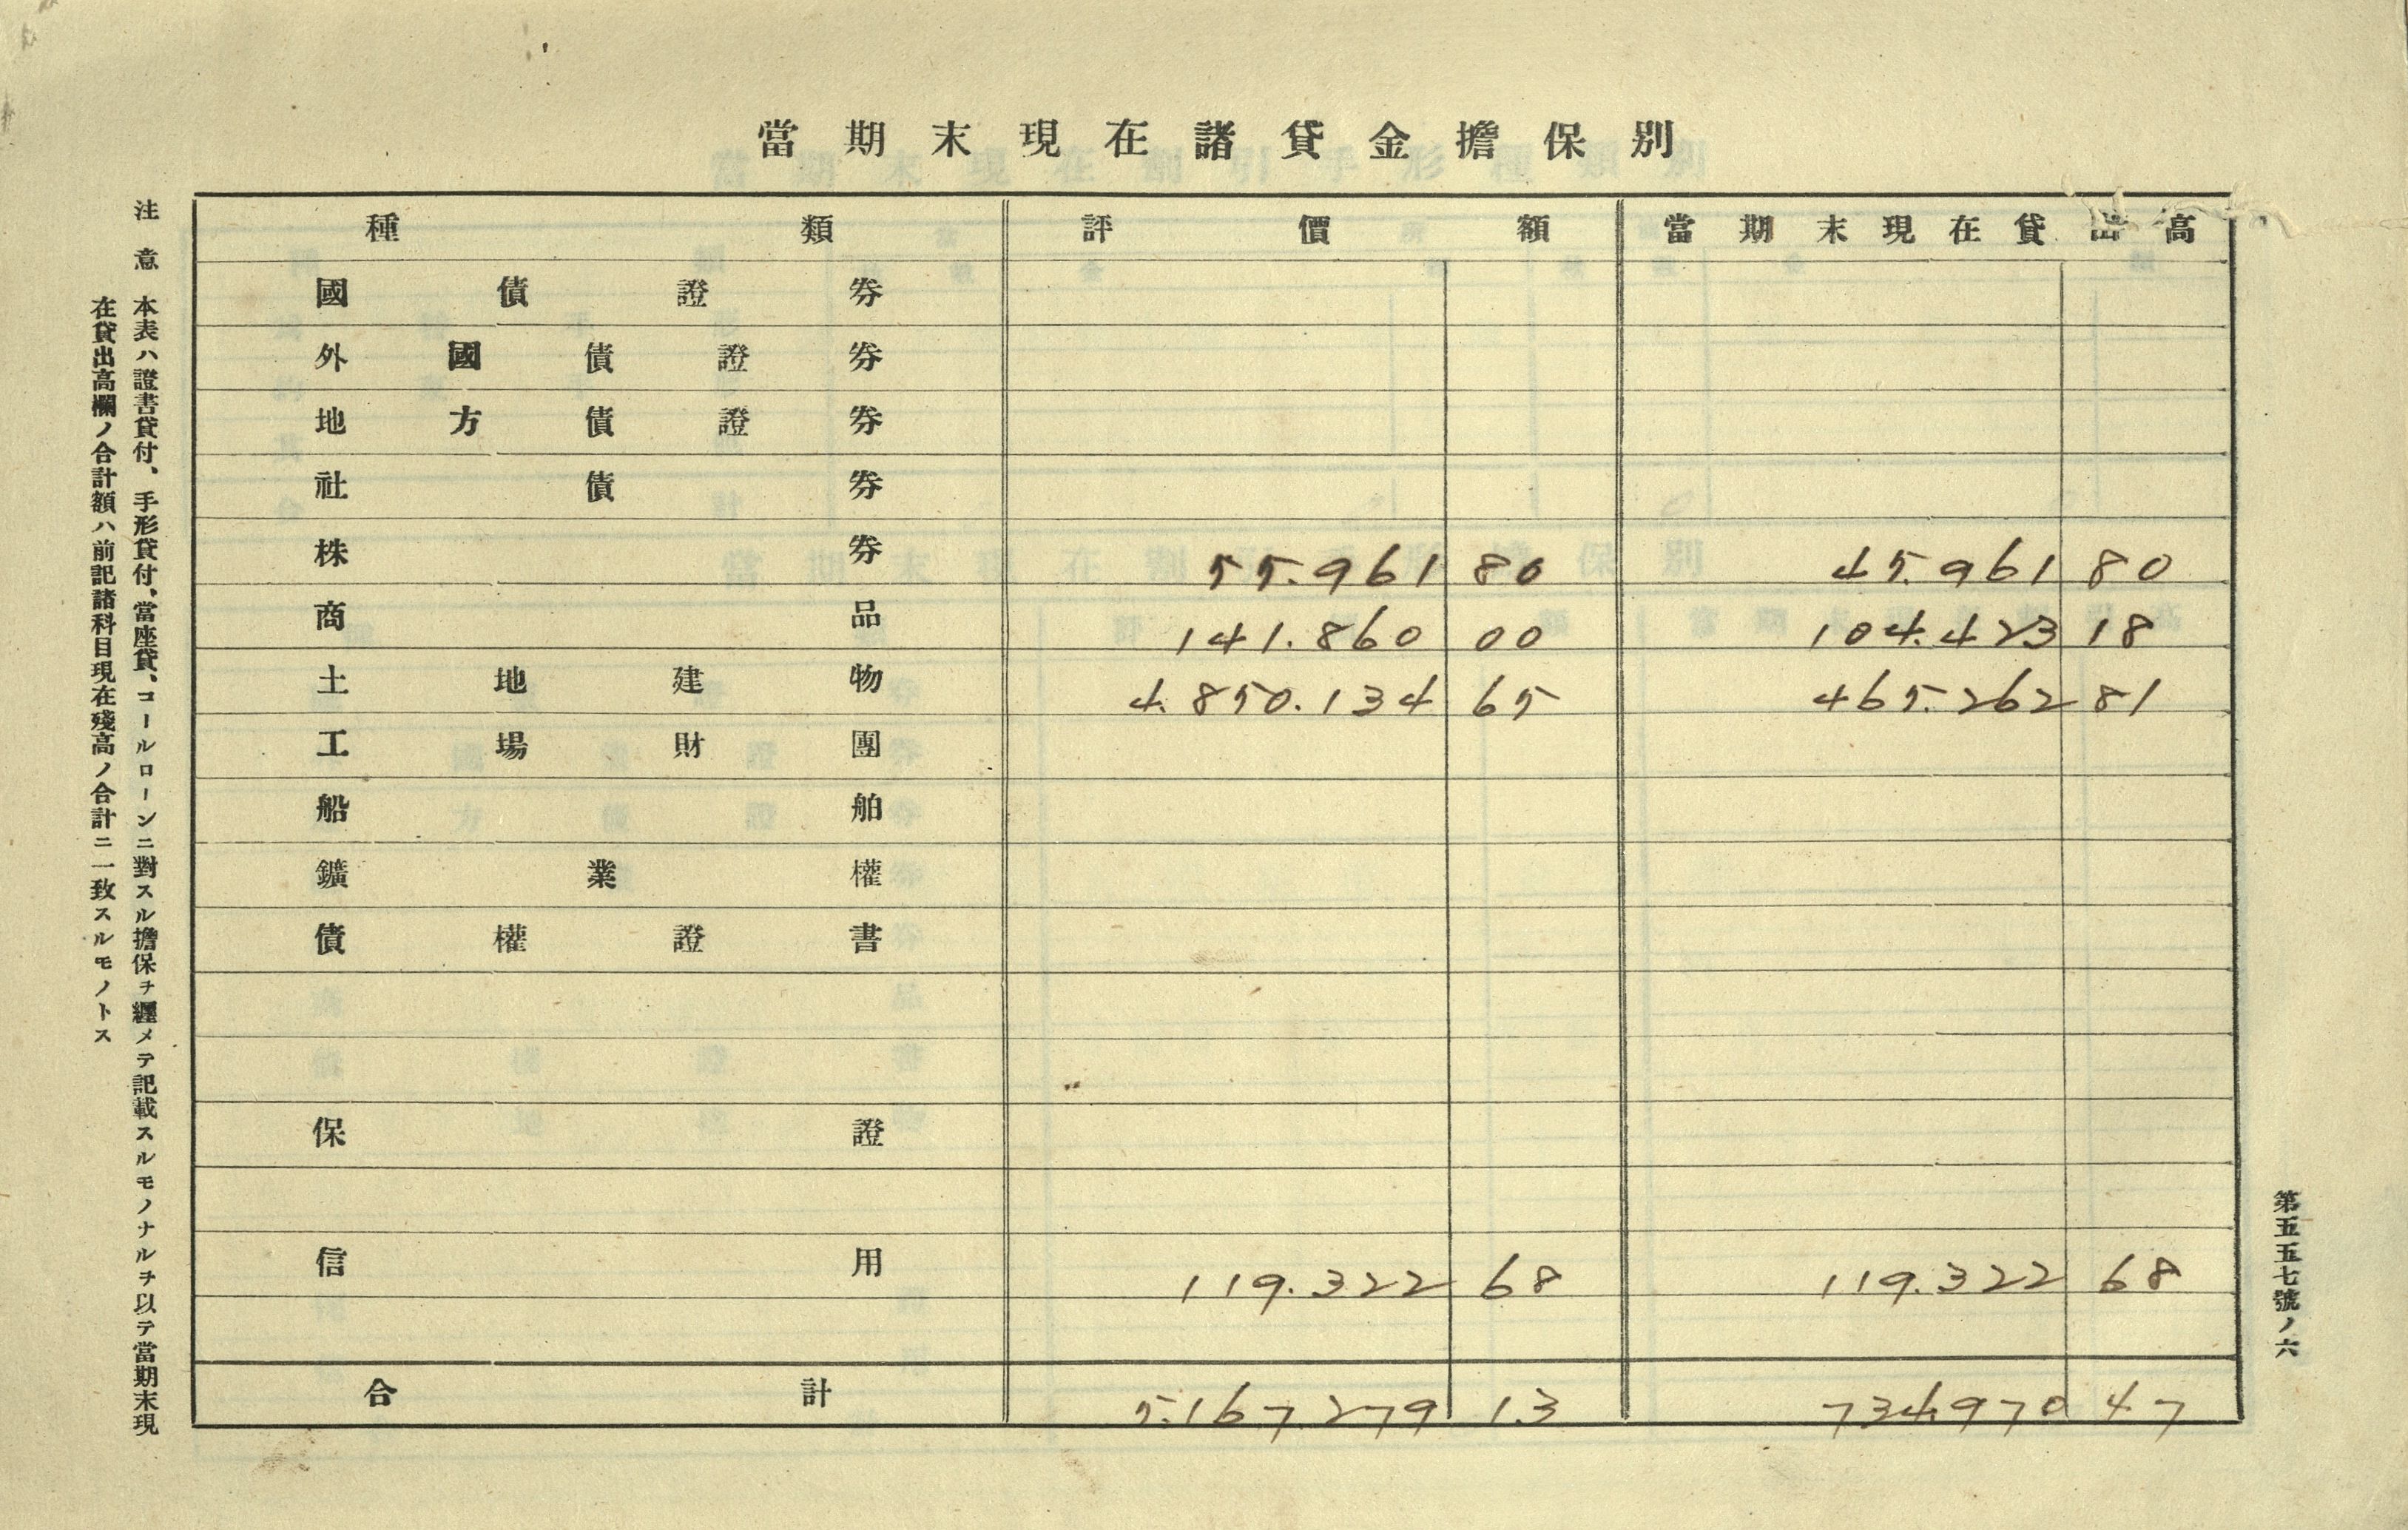 當期末現在諸貸金擔保別
種類 評價額 當期末現在貸出高
國債證券
外國債證券
地方債證券
社債券
株券 55.961 80 45.961 80
商品 141.860 00 104.423 18
土地建物 4.850.134 65 465.262 81
工場財團
船舶
鑛業權
債權證書
保證
信用 119.322 68 119.322 68
合計 5.167.279 13 734.970 47
注意 本表ハ證書貸付、手形貸付、當座貸、コールローンニ對スル擔保ヲ纒メテ記載スルモノナルヲ以テ當期末現
在貸出高欄ノ合計額ハ前記諸科目現在殘高ノ合計ニ一致スルモノトス
第五五七號ノ六